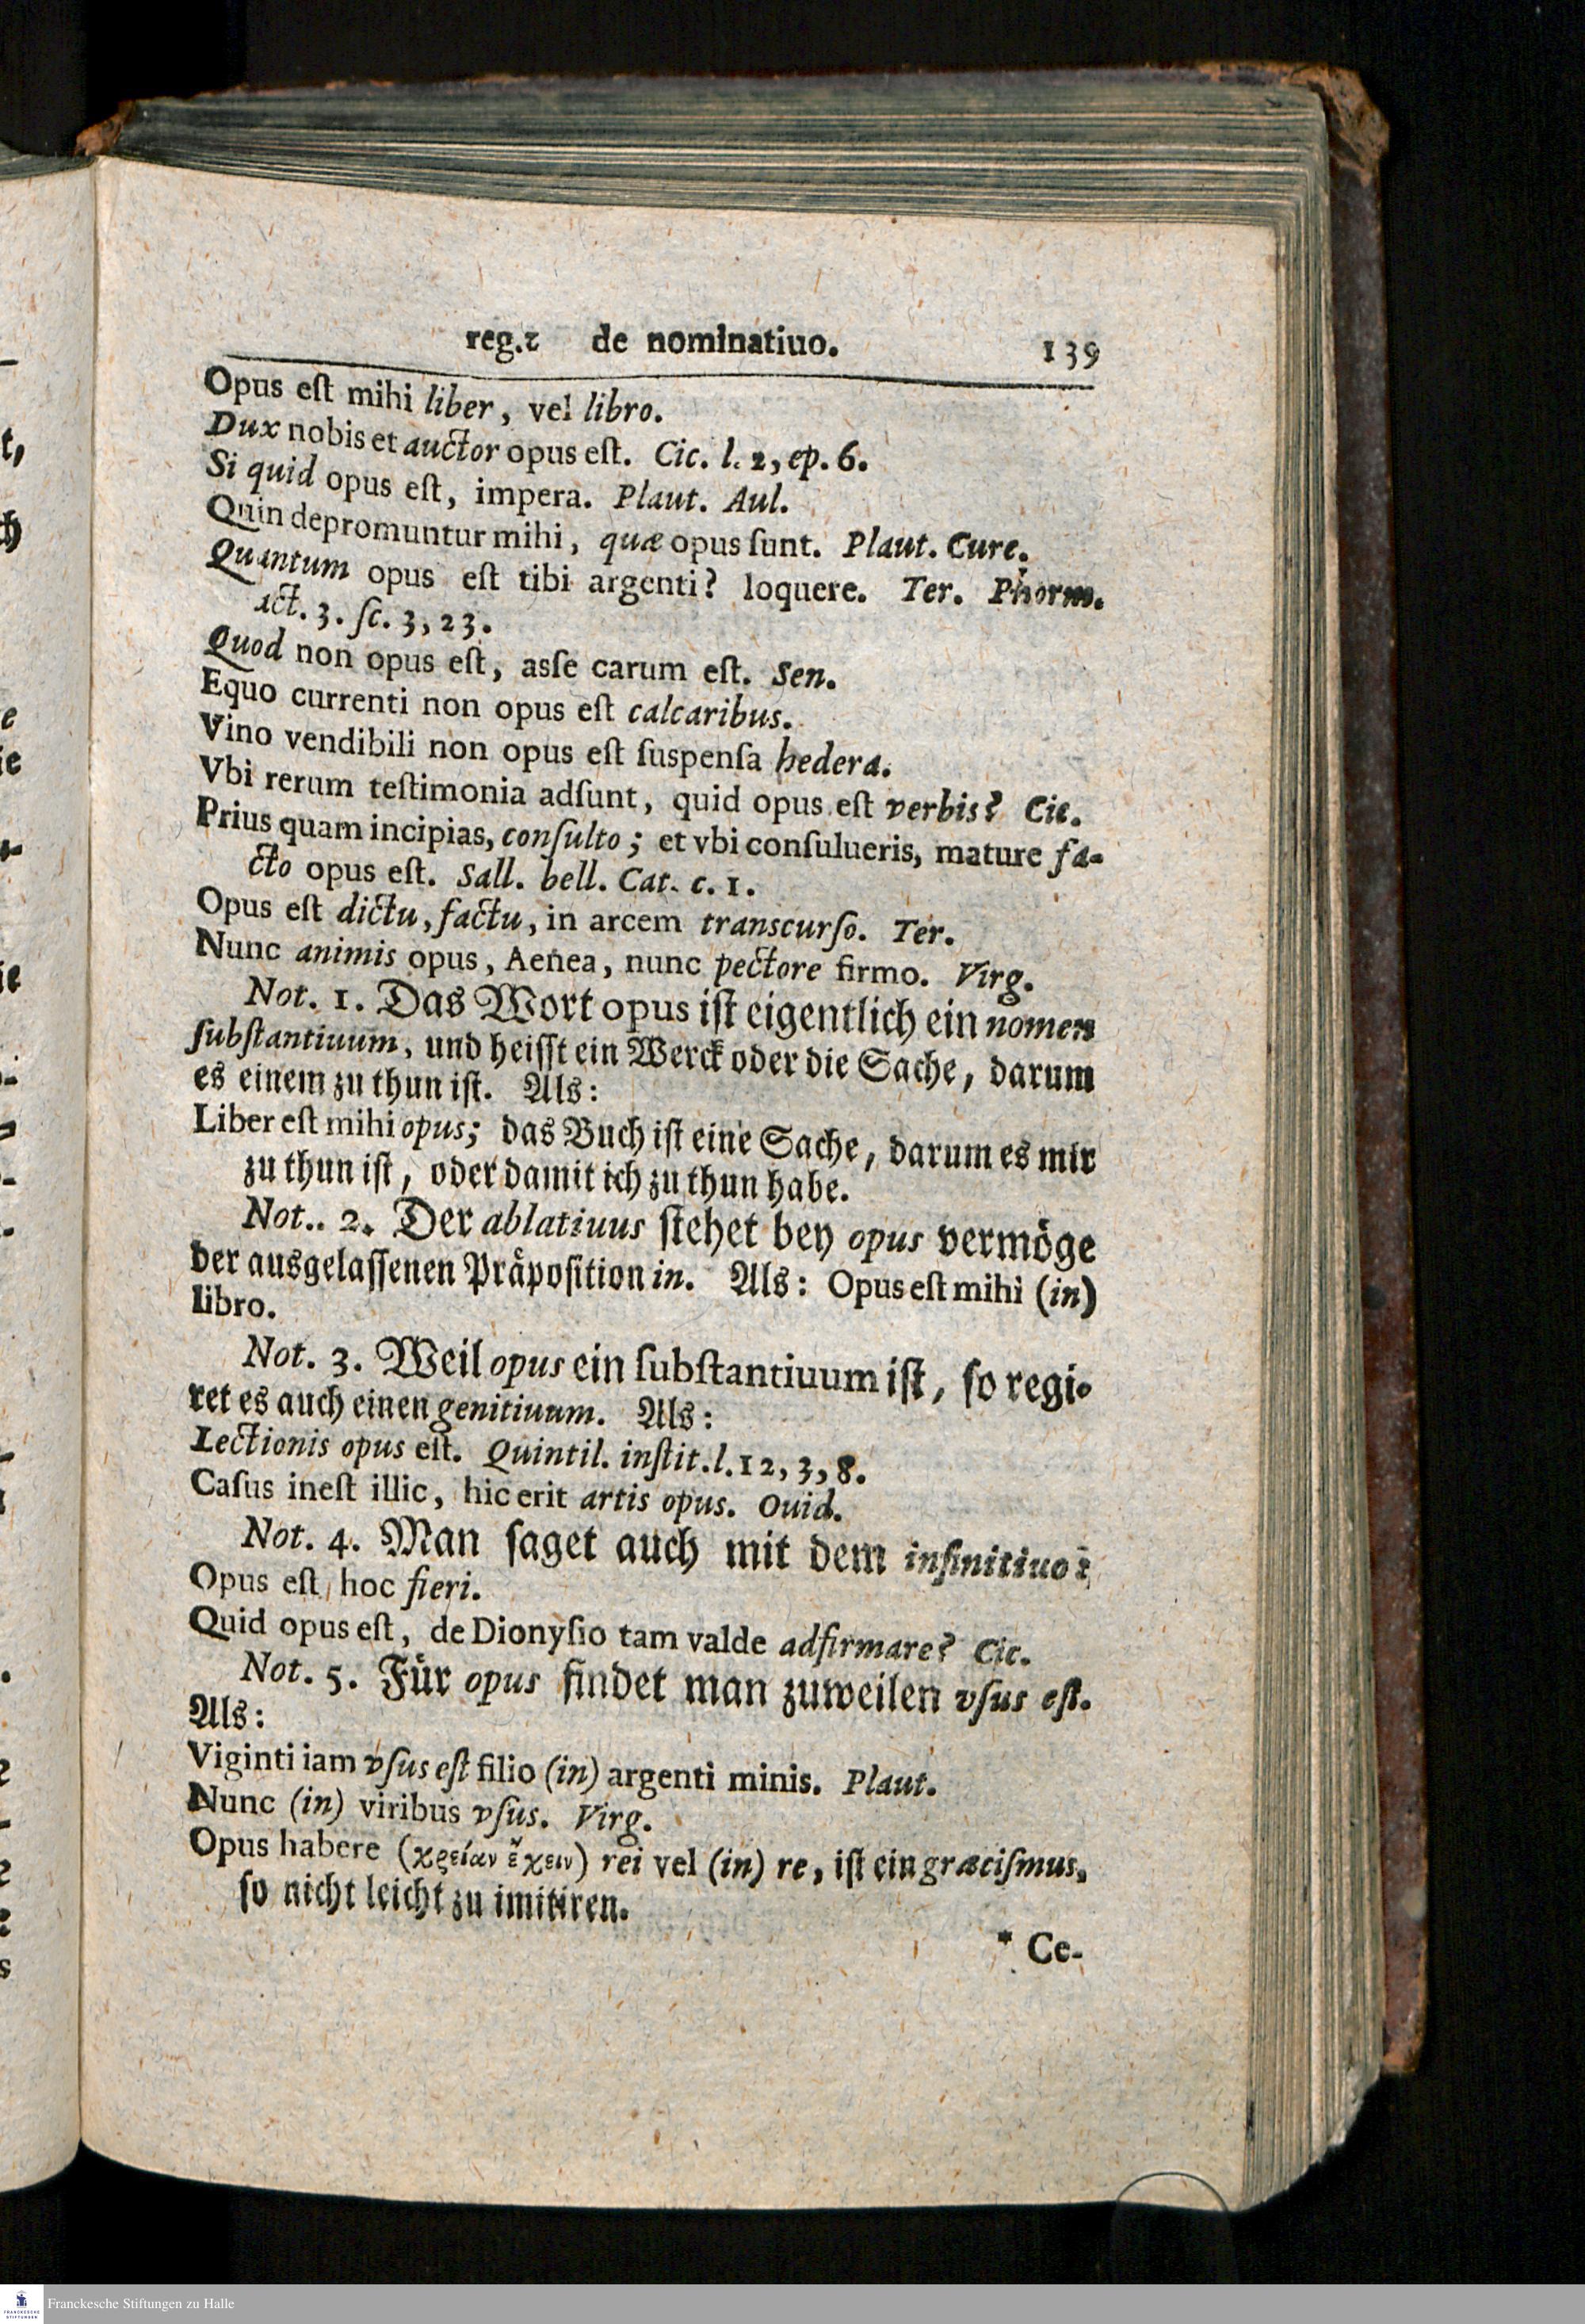 reg.2 de nominatiuo. 139
Opus eſt mihi liber, vel libro.
Dux nobis et auctor opus eſt. Cic. l. 2, ep. 6.
Si quid opus eſt, impera. Plaut. Aul.
Quin depromuntur mihi, quæ opus ſunt. Plaut. Curc.
Quantum opus eſt tibi argenti? loquere. Ter. Phorm.
act. 3. ſc. 3, 23.
Quod non opus eſt, asſe carum eſt. Sen.
Equo currenti non opus eſt calcaribus.
Vino vendibili non opus eſt ſuspenſa hedera.
Vbi rerum teſtimonia adſunt, quid opus eſt verbis? Cic.
Prius quam incipias, conſulto; et vbi conſulueris, mature fa-
cto opus eſt. Sall. bell. Cat. c. 1.
Opus eſt dictu, factu, in arcem transcurſo. Ter.
Nunc animis opus, Aenea, nunc pectore firmo. Virg.
Not. 1. Das Wort opus iſt eigentlich ein nomen
ſubſtantiuum, und heiſſt ein Werck oder die Sache, darum
es einem zu thun iſt. Als:
Liber eſt mihi opus; das Buch iſt eine Sache, darum es mir
zu thun iſt, oder damit ich zu thun habe.
Not.. 2. Der ablatiuus ſtehet bey opus vermöge
der ausgelaſſenen Präpoſition in. Als: Opus eſt mihi (in)
libro.
Not. 3. Weil opus ein ſubſtantiuum iſt, ſo regi-
ret es auch einen genitiuum. Als:
Lectionis opus eſt. Quintil. inſtit. l. 12, 3, 8.
Caſus ineſt illic, hic erit artis opus. Ouid.
Not. 4. Man ſaget auch mit dem infinitiuo:
Opus eſt hoc fieri.
Quid opus eſt, de Dionyſio tam valde adfirmare? Cic.
Not. 5. Für opus findet man zuweilen vſus eſt.
Als:
Viginti iam vſus eſt filio (in) argenti minis. Plaut.
Nunc (in) viribus vſus. Virg.
Opus habere (χρείαν ἔχειν) rei vel (in) re, iſt ein græciſmus,
ſo nicht leicht zu imitiren.
* Ce-
Franckesche Stiftungen zu Halle